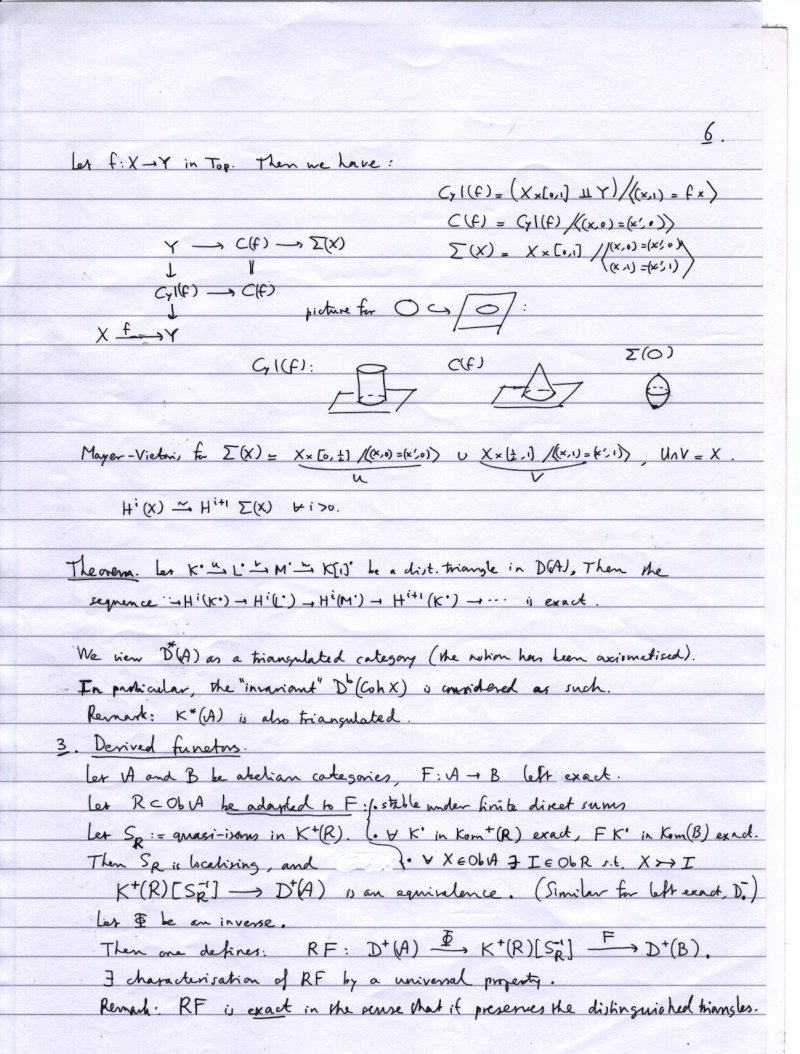 6.
Let f: X → Y in Top. Then we have:
Cyl(f) = (X×[0,1] ⨿ Y)/⟨(x,1) = fx⟩
C(f) = Cyl(f)/⟨(x,0)=(x',0)⟩
Y → C(f) → Σ(X)
Σ(X) = X×[0,1]/⟨(x,0)=(x',0) (x,1)=(x',1)⟩
↓ ||
Cyl(f) → C(f)
↓
X f→ Y
picture for ○ ↪ :
Cyl(f): C(f) Σ(○)
Mayer-Vietoris for Σ(X) = X×[0,½]/⟨(x,0)=(x',0)⟩ ∪ X×[½,1]/⟨(x,1)=(x',1)⟩, U∩V = X.
U V
Hⁱ(X) ≃ Hⁱ⁺¹ Σ(X) ∀ i>0.
Theorem. Let K• u→ L• v→ M• w→ K[1]• be a dist. triangle in D(A). Then the
sequence → Hⁱ(K•) → Hⁱ(L•) → Hⁱ(M•) → Hⁱ⁺¹(K•) → ··· is exact.
We view D*(A) as a triangulated category (the notion has been axiomatised).
In particular, the "invariant" Dᵇ(Coh X) is considered as such.
Remark: K*(A) is also triangulated.
3. Derived functors.
Let A and B be abelian categories, F: A → B left exact.
Let R ⊂ Ob A be adapted to F: • stable under finite direct sums
Let S_R := quasi-isoms in K⁺(R). • ∀ K• in Kom⁺(R) exact, F K• in Kom(B) exact.
Then S_R is localising, and • ∀ X ∈ Ob A ∃ I ∈ Ob R s.t. X ↣ I
K⁺(R)[S_R⁻¹] → D⁺(A) is an equivalence. (Similar for left exact, D⁻.)
Let Φ be an inverse.
Then one defines: RF: D⁺(A) Φ→ K⁺(R)[S_R⁻¹] F→ D⁺(B).
∃ characterisation of RF by a universal property.
Remark: RF is exact in the sense that it preserves the distinguished triangles.